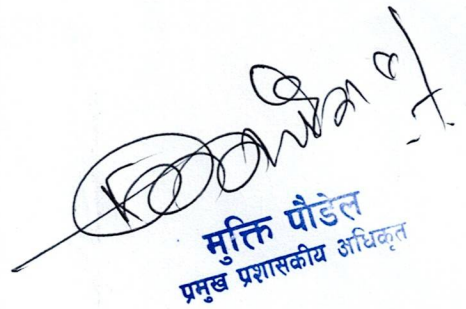 मुक्ति पौडेल
प्रमुख प्रशासकीय अधिकृत